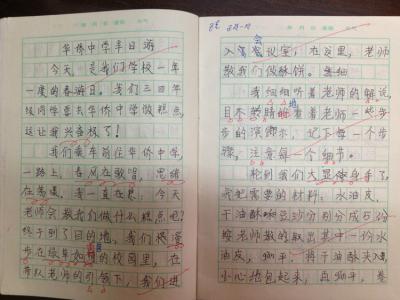 华侨中学半日游
今天,是我们学校一年
一度的春游日。我们三四年
级同学要去华侨中学做糕点,
这让我兴奋极了!
我们乘车前往华侨中学,
一路上,春风在歌唱,思绪
在荡漾。我一直在想:今天
老师会教我们做什么糕点呢?
终于到了目的地,我们
步在绿车如茵的校园里,在
带队老师的引领下,我们进
会
入客议室,在这里,老师
教我们做酥饼。
我细细听着老师的解说,
目不转睛地看着老师一些步
步的演示,记下每一个步
骤,注意每一个细节。
轮到我们大显身手了。
我把需要的材料:水油皮,
干油酥和豆沙分别分成五份
按老师教的取出其中一份水
油皮,擀平,将干油酥夹入
小心地包起来,再擀平,卷